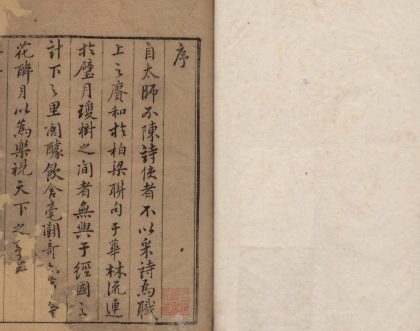 序
自太師不陳詩使者不以采詩為職
上之賡和於柏梁聯句于華林流連
於璧月瓊樹之間者無與于經國之
計下之里閭醵飲含毫鬪奇
花醉月以為樂視天下之